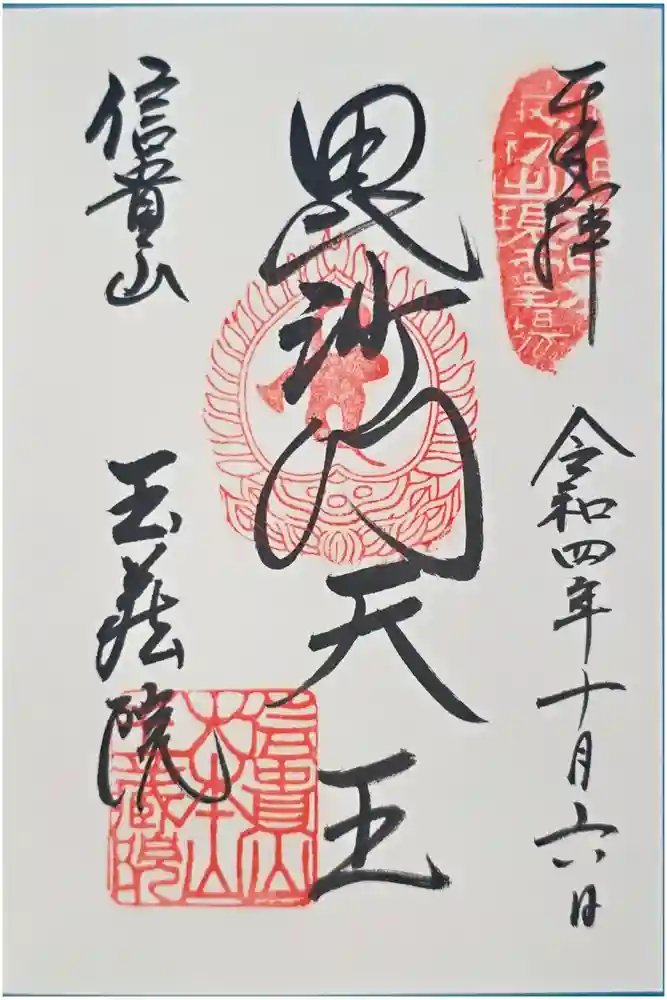 奉拝
令和四年十月六日
毘沙門天王
信貴山
玉蔵院
信貴山
大本山
玉蔵院